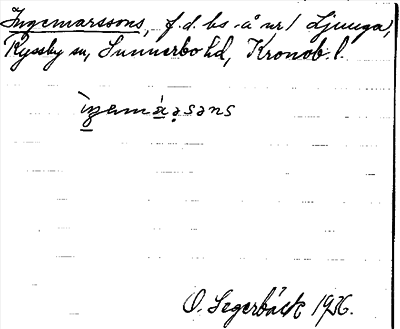 Ingemarssons, f.d. hs -å nr 1 Ljunga,
Ryssby sn, Sunnerbo hd, Kronob. l.
O. Segerbäck 1936.